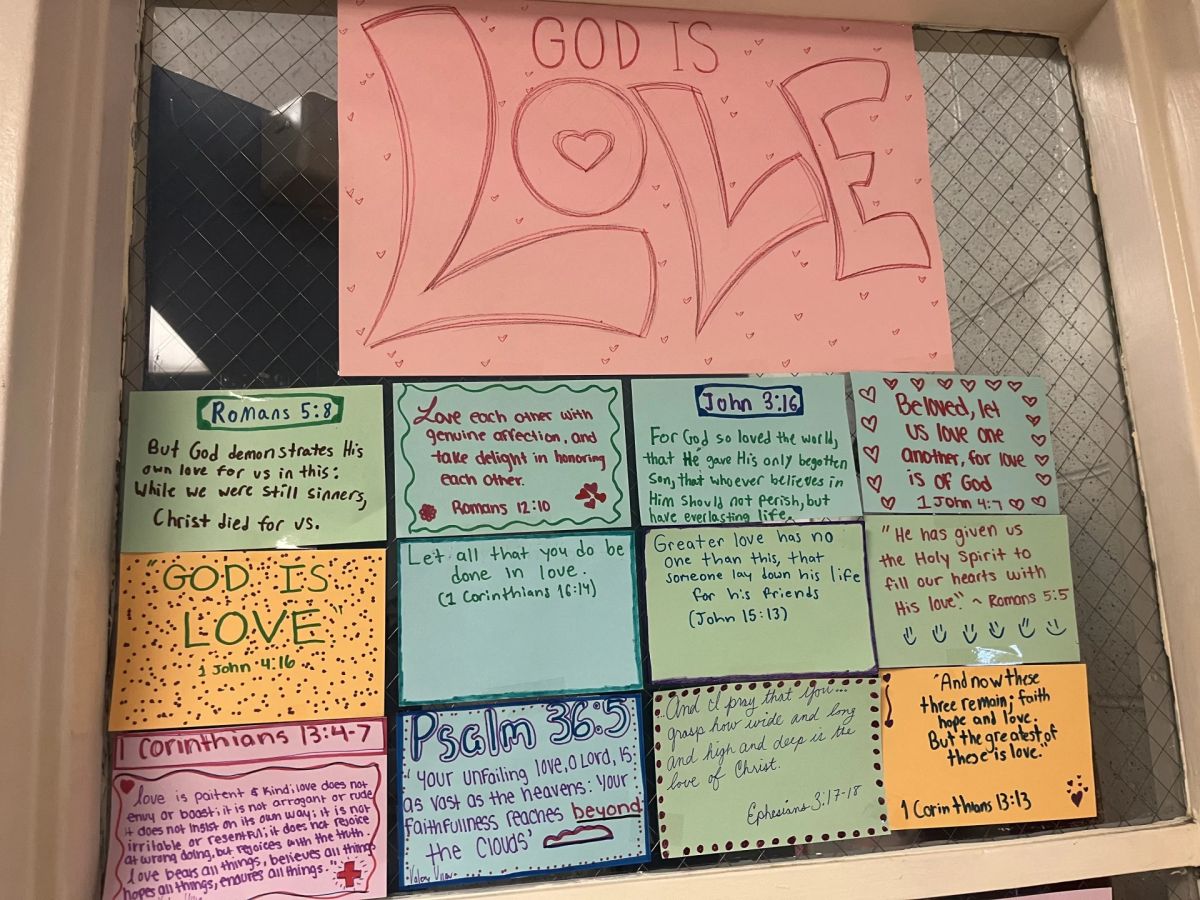 GOD IS
LOVE
Romans 5:8
But God demonstrates His
own love for us in this:
While we were still sinners,
Christ died for us.
Love each other with
genuine affection, and
take delight in honoring
each other.
Romans 12:10
John 3:16
For God so loved the world,
that He gave His only begotten
son, that whoever believes in
Him should not perish, but
have everlasting life.
Beloved, let
us love one
another, for love
is of God
1 John 4:7
"GOD IS
LOVE"
1 John 4:16
Let all that you do be
done in love.
(1 Corinthians 16:14)
Greater love has no
one than this, that
someone lay down his life
for his friends
(John 15:13)
"He has given us
the Holy Spirit to
fill our hearts with
His love." ~ Romans 5:5
1 Corinthians 13:4-7
love is paitent & kind; love does not
envy or boast; it is not arrogant or rude
it does not insist on its own way; it is not
irrilable or resentful; it does not rejoice
at wrong doing, but rejoices with the truth.
Love bears all things, believes all things
hopes all things, endures all things.
Psalm 36:5
"Your unfailing love, O Lord, is:
as vast as the heavens: your
faithfullness reaches beyond
the clouds'
And I pray that you...
grasp how wide and long
and high and deep is the
love of Christ.
Ephesians 3:17-18
"And now these
three remain; faith
hope and love.
But the greatest of
these is love."
1 Corinthians 13:13